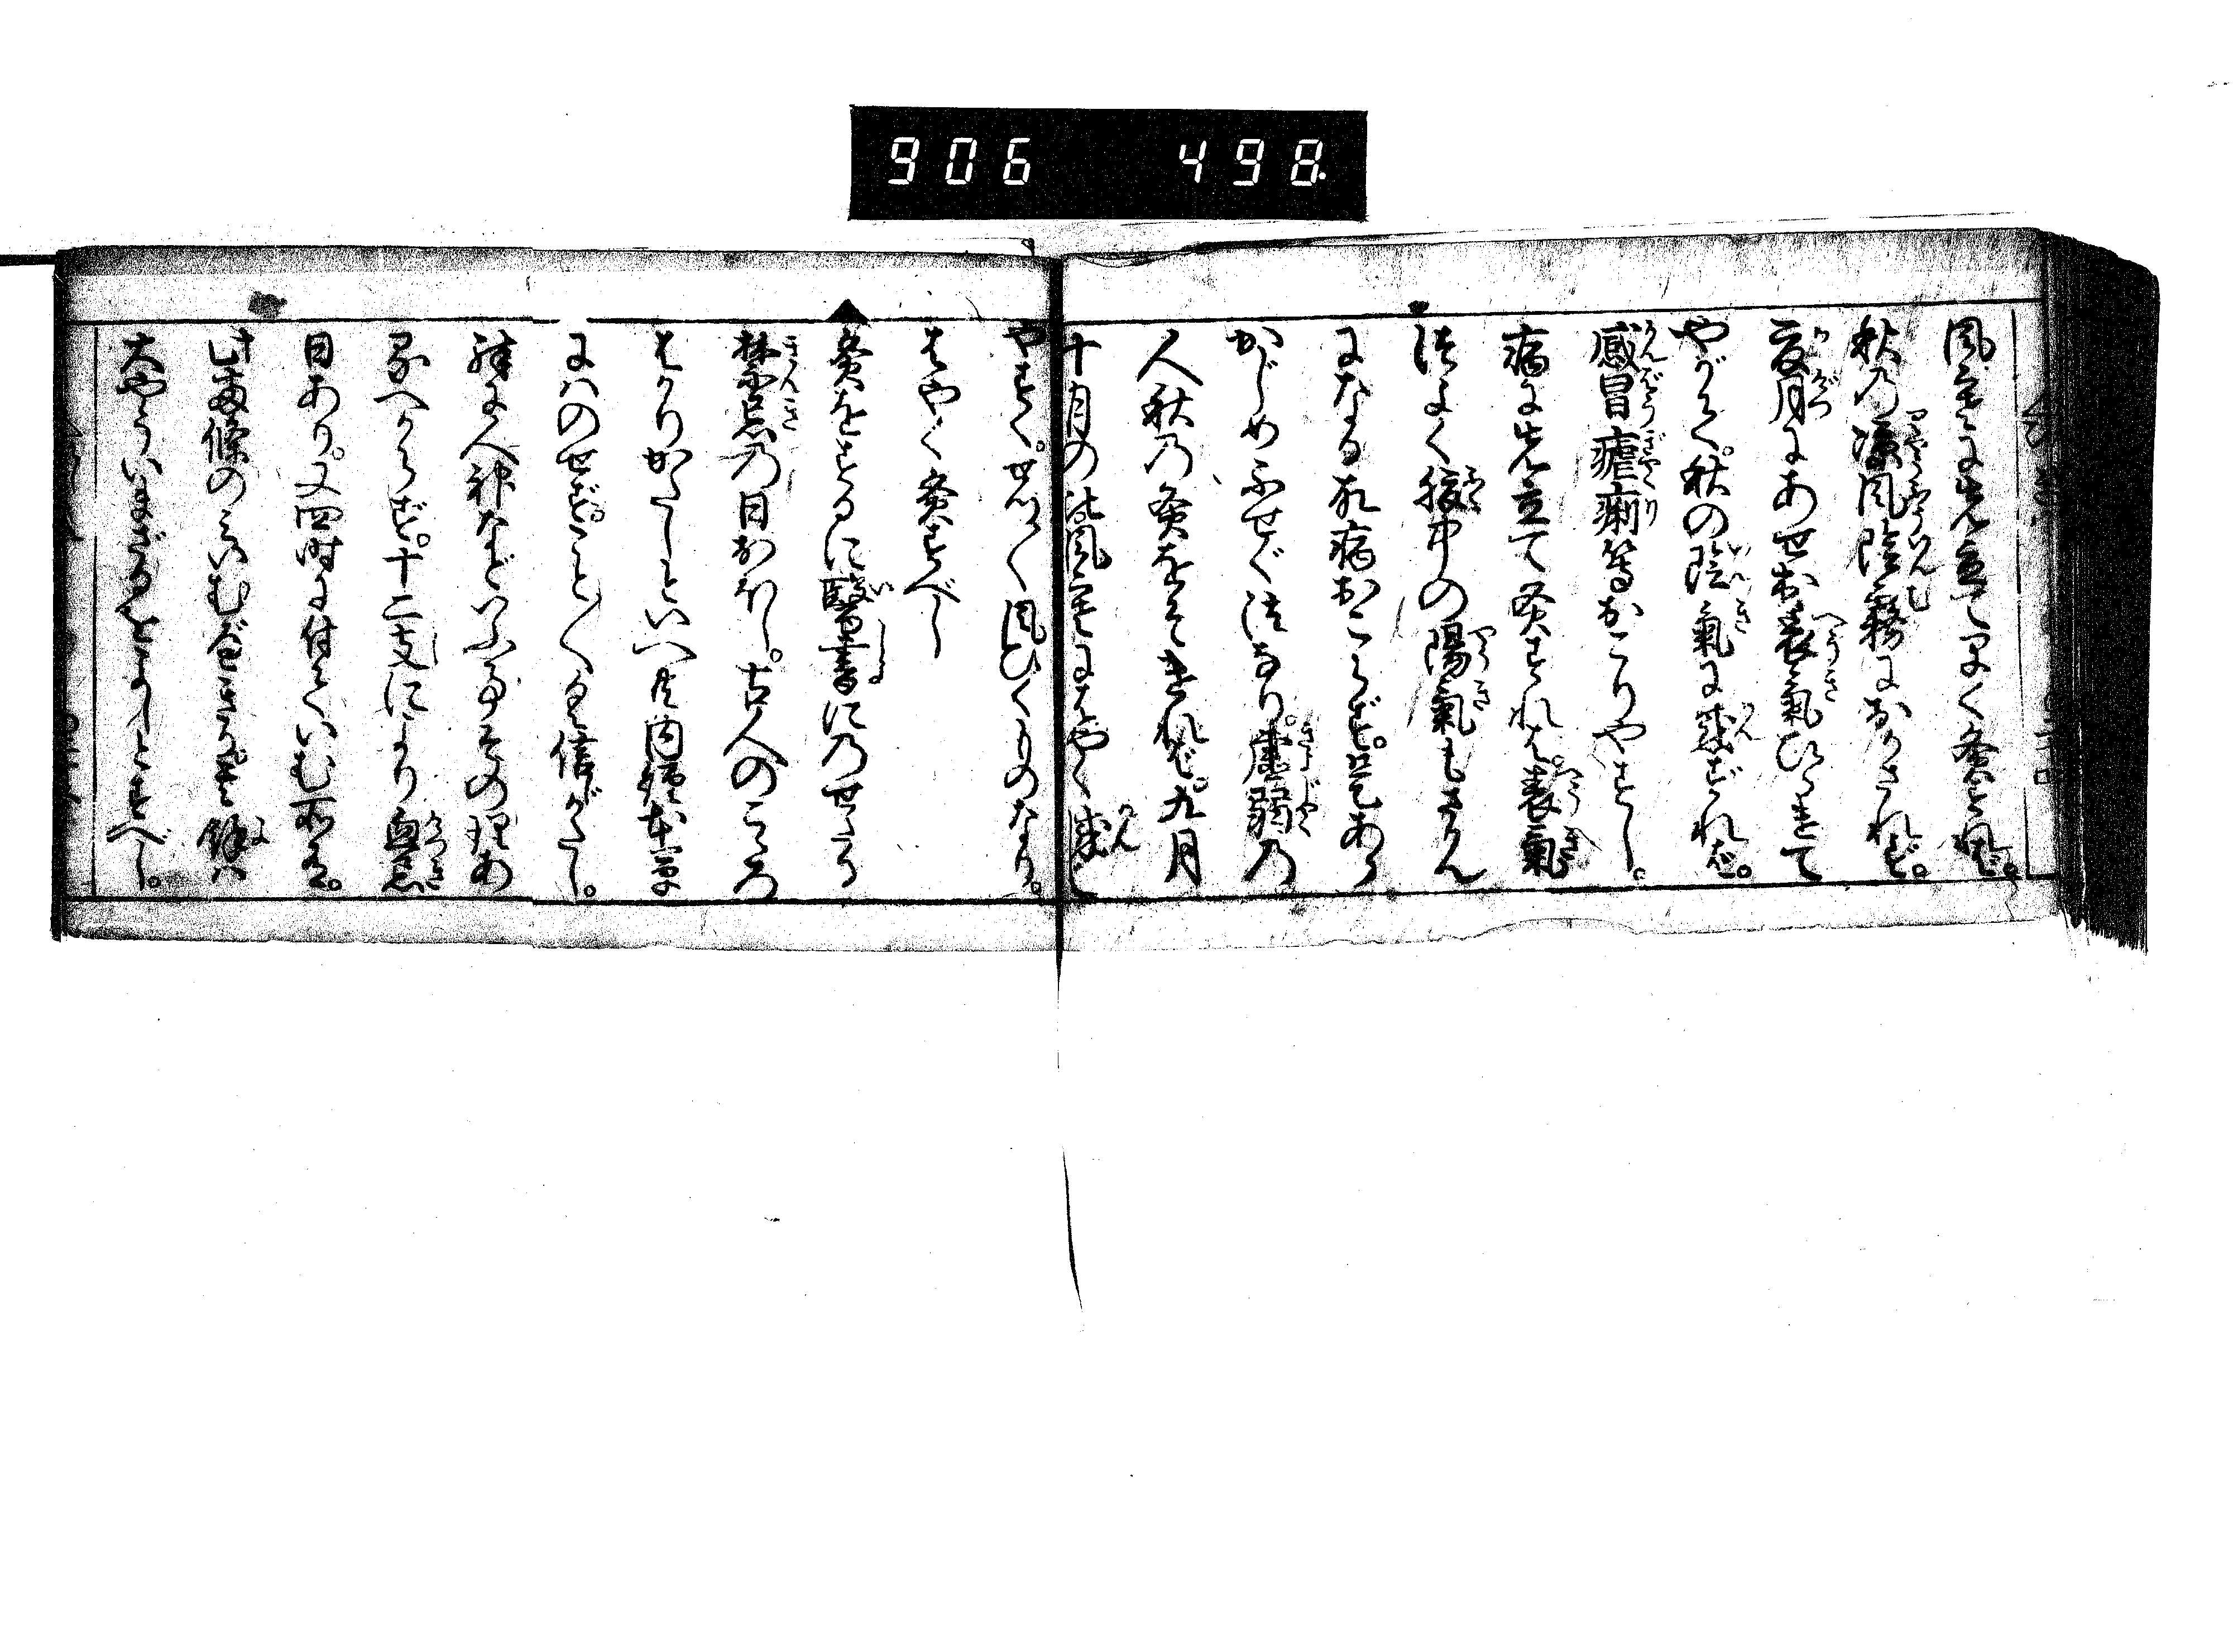 906 498
風寒に先立て早く灸すれば。
秋の凉風陰霧におかされず。
夏月にあせ出表氣ひらきて
やがて秋の陰氣に感ずれば。
感冒瘧痢等おこりやすし。
病に先立て灸すれば。表氣
つよく腹中の陽氣もさかん
になる故病おこらず。是あら
かじめふせぐ法なり。虚弱の
人秋の灸をそきれば。九月
十月の比風寒にはやく感じ
やすく。せはしく風ひくものなり。
はやく灸すべし
灸をするに醫書にのせたる
禁忌の日おほし。古人のこころ
はかりがたしといへ共内經本草
にはのせず。ことごとくは信じがたし。
殊に人神などいふ事その理あ
るべからず。十二支により血忌
日あり。又四時に付ていむ所有。
此両條のみいむべきか。其餘は
大やういまざるもよしとすべし。